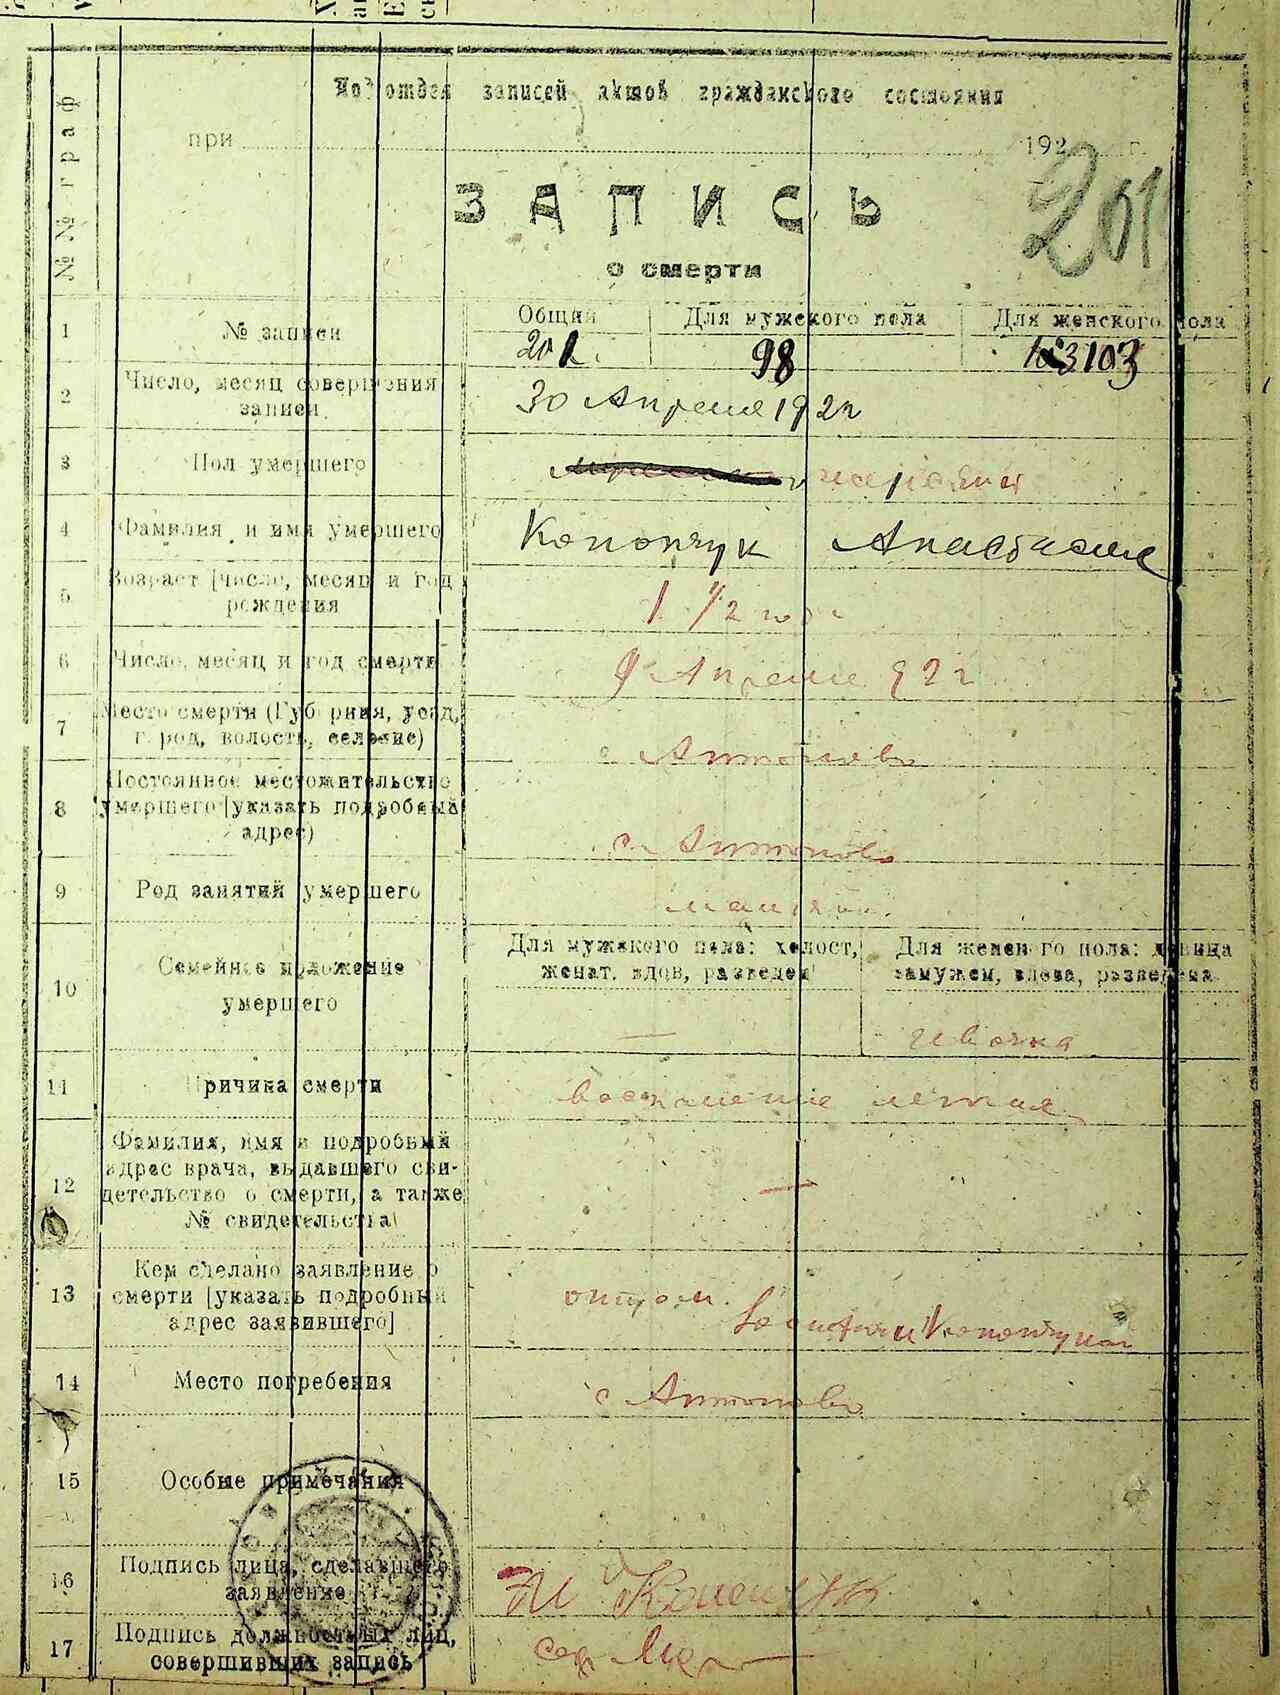 Подотдел записей актов гражданского состояния
при 192 г.
201
ЗАПИСЬ
о смерти
№№ граф
1 № записи Общий Для мужского пола Для женского пола
201. 98 103
2 Число, месяц совершения записи
30 Апреля 1922 г
3 Пол умершего
женский
4 Фамилия и имя умершего
Конончук Анастасия
5 Возраст [число, месяц и год рождения
1 1/2 года
6 Число, месяц и год смерти
9 Апреля 922 г
7 Место смерти (Губерния, уезд, город, волость, селение)
с Антоновъ
8 Постоянное местожительство умершего [указать подробный адрес)
с. Антоновъ
9 Род занятий умершего
10 Семейное положение умершего
Для мужского пола: холост, женат, вдов, разведен
Для женского пола: девица замужем, вдова, разведена
— девочка
11 Причина смерти
воспаление легких
12 Фамилия, имя и подробный адрес врача, выдавшего свидетельство о смерти, а также № свидетельства
—
13 Кем сделано заявление о смерти [указать подробный адрес заявившего]
отцом.
Конончуком
14 Место погребения
с Антоновъ
15 Особые примечания
16 Подпись лица, сделавшего заявление
17 Подпись должностных лиц, совершивших запись